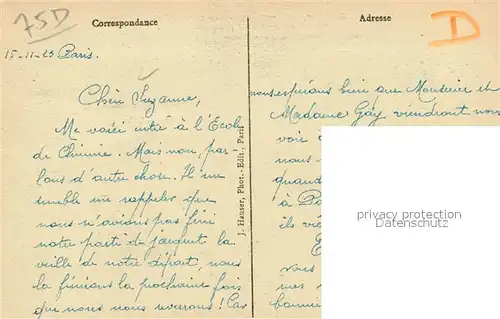 75D
Correspondance
Adresse
D
15-11-23 Paris.
Chère Suzanne,
Me voici à l'École
de Chimie. Mais non, par-
lons d'autre chose. Il me
semble me rappeler que
nous n'avions pas fini
notre partie de jacquet la
veille de notre départ, nous
la finirons la prochaine fois
que nous nous reverrons! Car
nous espérons bien que Monsieur et
Madame Gay viendront nous
voir
nous
quand
à
ils
vous
mes
J. Hauser, Phot.-Edit., Paris
privacy protection
Datenschutz